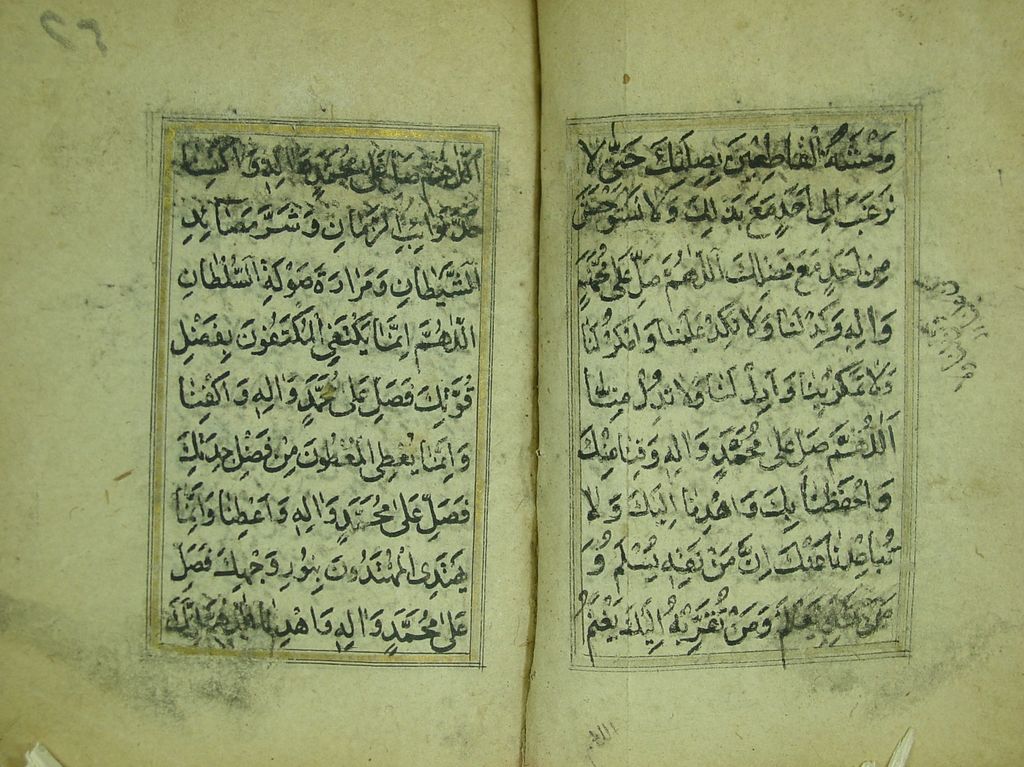 وَحْشَةَ الْقَاطِعِينَ بِصِلَتِكَ حَتّٰى لَا
نَرْغَبَ اِلٰى اَحَدٍ مَعَ بَذْلِكَ وَلَا نَسْتَوْحِشَ
مِنْ اَحَدٍ مَعَ فَضْلِكَ اَللّٰهُمَّ صَلِّ عَلٰى مُحَمَّدٍ
وَاٰلِهِ وَكِدْ لَنَا وَلَا تَكِدْ عَلَيْنَا وَامْكُرْ لَنَا
وَلَا تَمْكُرْ بِنَا وَاَدِلْ لَنَا وَلَا تُدِلْ مِنَّا
اَللّٰهُمَّ صَلِّ عَلٰى مُحَمَّدٍ وَاٰلِهِ وَقِنَا مِنْكَ
وَاحْفَظْنَا بِكَ وَاهْدِنَا اِلَيْكَ وَلَا
تُبَاعِدْنَا عَنْكَ اِنَّ مَنْ تَقِهِ يَسْلَمْ وَ
مَنْ تَهْدِهِ يَعْلَمْ وَمَنْ تُقَرِّبْهُ اِلَيْكَ يَغْنَمْ
اَللّٰهُمَّ صَلِّ عَلٰى مُحَمَّدٍ وَاٰلِهِ وَاكْفِنَا
حَدَّ نَوَائِبِ الزَّمَانِ وَشَرَّ مَصَايِدِ
الشَّيْطَانِ وَمَرَارَةَ صَوْلَةِ السُّلْطَانِ
اَللّٰهُمَّ اِنَّمَا يَكْتَفِي الْمُكْتَفُونَ بِفَضْلِ
قُوَّتِكَ فَصَلِّ عَلٰى مُحَمَّدٍ وَاٰلِهِ وَاكْفِنَا
وَاِنَّمَا يُعْطِي الْمُعْطُونَ مِنْ فَضْلِ جِدَتِكَ
فَصَلِّ عَلٰى مُحَمَّدٍ وَاٰلِهِ وَاَعْطِنَا وَاِنَّمَا
يَهْتَدِي الْمُهْتَدُونَ بِنُورِ وَجْهِكَ فَصَلِّ
عَلٰى مُحَمَّدٍ وَاٰلِهِ وَاهْدِنَا اَللّٰهُمَّ اِنَّكَ